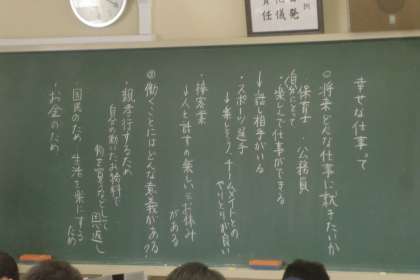 幸せな仕事って
○将来どんな仕事に就きたいか
・保育士 ・公務員
(自分にとって)
・楽しんで仕事ができる
↓話し相手がいる
・スポーツ選手
↓楽しそう チームメイトとの
やりとりが良い
・接客業
↓人と話すの楽しい お休み
がある
◎働くことにはどんな意義がある?
・親孝行するため
自分の働いたお給料で
物を買うなどして恩返し
・国民のため 生活を楽にするため
・お金のため
責任